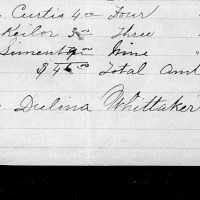 Curtis 4.00 Four
Keilor 3.00 Three
Siment 9.00 Nine "
$46.00 Total Amt
Delma Whittaker